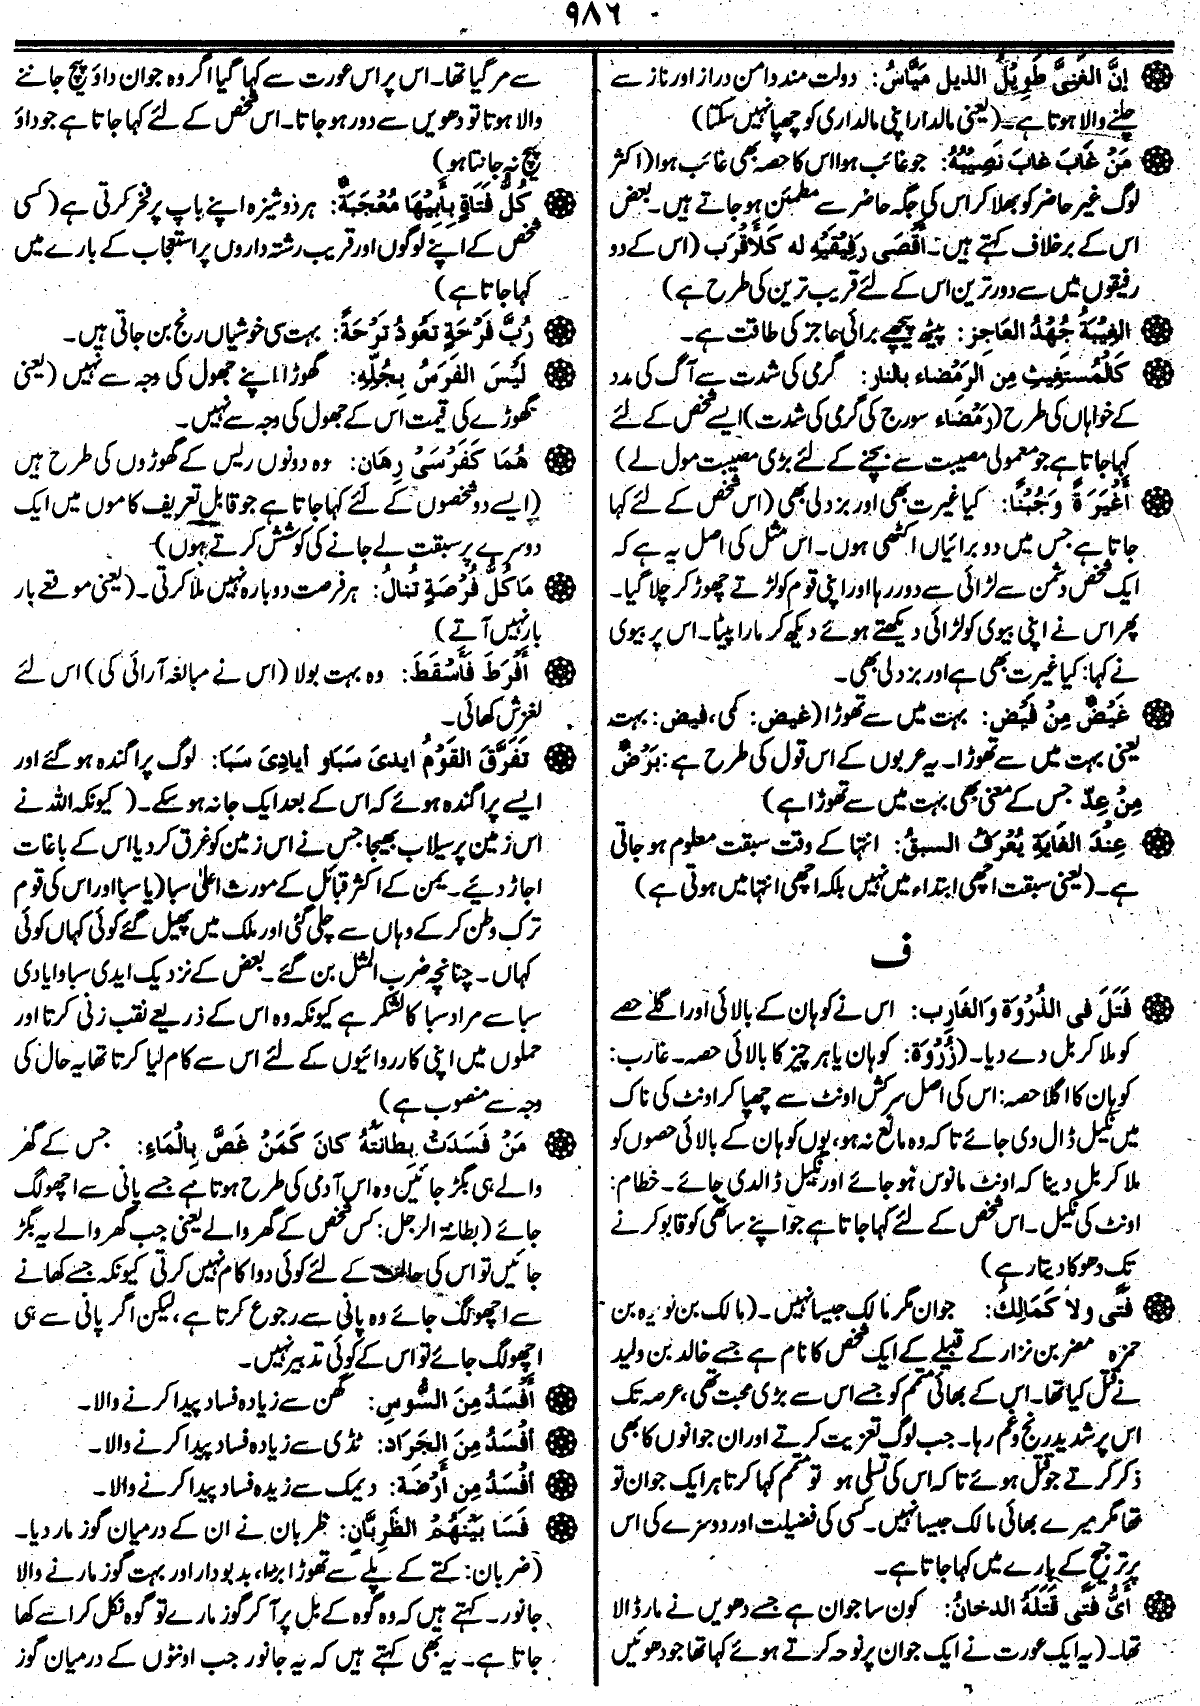 ۹۸۶
إِنَّ الغَنِیَّ طَوِیْلُ الذیل مَیَّاسُ: دولت مند دامن دراز اور ناز سے
چلنے والا ہوتا ہے۔ (یعنی مالدار اپنی مالداری کو چھپا نہیں سکتا)
مَنْ غَابَ غابَ نَصِیْبُهُ: جو غائب ہوا اس کا حصہ بھی غائب ہوا (اکثر
لوگ غیر حاضر کو بھلا کر اس کی جگہ حاضر سے مطمئن ہو جاتے ہیں۔ بعض
اس کے برخلاف کہتے ہیں۔ أَقْصَى رَفِیْقَیْهِ له كَلَأَقْرَب (اس کے دو
رفیقوں میں سے دور ترین اس کے لئے قریب ترین کی طرح ہے)
الغِیْبَةُ جُهْدُ العَاجِزِ: پیٹھ پیچھے برائی عاجز کی طاقت ہے۔
كَالْمُسْتَغِیْثِ مِن الرَمْضَاء بالنار: گرمی کی شدت سے آگ کی مدد
کے خواہاں کی طرح (رَمْضَاء سورج کی گرمی کی شدت) ایسے شخص کے لئے
کہا جاتا ہے جو معمولی مصیبت سے بچنے کے لئے بڑی مصیبت مول لے)
أَغَیْرَةً وَجُبْنًا: کیا غیرت بھی اور بزدلی بھی (اس شخص کے لئے کہا
جاتا ہے جس میں دو برائیاں اکٹھی ہوں۔ اس مثل کی اصل یہ ہے کہ
ایک شخص دشمن سے لڑائی سے دور رہا اور اپنی قوم کو لڑتے چھوڑ کر چلا گیا۔
پھر اس نے اپنی بیوی کو لڑائی دیکھتے ہوئے دیکھ کر مارا پیٹا۔ اس پر بیوی
نے کہا: کیا غیرت بھی ہے اور بزدلی بھی۔
غَیْضٌ مِنْ فَیْض: بہت میں سے تھوڑا (غیض: کمی، فیض: بہت
یعنی بہت میں سے تھوڑا۔ یہ عربوں کے اس قول کی طرح ہے: بَرْضٌ
مِنْ عِدّ جس کے معنی بھی بہت میں سے تھوڑا ہے)
عِنْدَ الغَایَةِ یُعْرَفُ السبقُ: انتہا کے وقت سبقت معلوم ہو جاتی
ہے۔ (یعنی سبقت اچھی ابتداء میں نہیں بلکہ اچھی انتہا میں ہوتی ہے)
ف
فَتَلَ فی الذُرْوَة وَالغَارِبِ: اس نے کوہان کے بالائی اور اگلے حصے
کو ملا کر بل دے دیا۔ (ذُرْوَة: کوہان یا ہر چیز کا بالائی حصہ۔ غارب:
کوہان کا اگلا حصہ: اس کی اصل سرکش اونٹ سے چھپا کر اونٹ کی ناک
میں نکیل ڈال دی جائے تاکہ وہ مانع نہ ہو، یوں کوہان کے بالائی حصوں کو
ملا کر بل دینا کہ اونٹ مانوس ہو جائے اور نکیل ڈالدی جائے۔ خطام:
اونٹ کی نکیل۔ اس شخص کے لئے کہا جاتا ہے جو اپنے ساتھی کو قابو کرنے
تک دھوکا دیتا رہے)
فَتًى ولا كَمَالِكٍ: جوان مگر مالک جیسا نہیں۔ (مالک بن نویرہ بن
حمزہ مضر بن نزار کے قبیلے کے ایک شخص کا نام ہے جسے خالد بن ولید
نے قتل کیا تھا۔ اس کے بھائی متمم کو جسے اس سے بڑی محبت تھی، عرصہ تک
اس پر شدید رنج و غم رہا۔ جب لوگ تعزیت کرتے اور ان جوانوں کا بھی
ذکر کرتے جو قتل ہوئے تاکہ اس کی تسلی ہو تو متمم کہا کرتا ہر ایک جوان تو
تھا مگر میرے بھائی مالک جیسا نہیں۔ کسی کی فضیلت اور دوسرے کی اس
پر ترجیح کے بارے میں کہا جاتا ہے۔
أَیُّ فَتًى قَتَلَهُ الدخانُ: کون سا جوان ہے جسے دھویں نے مار ڈالا
تھا۔ (یہ ایک عورت نے ایک جوان پر نوحہ کرتے ہوئے کہا تھا جو دھوئیں
سے مر گیا تھا۔ اس پر اس عورت سے کہا گیا اگر وہ جوان داؤ پیچ جاننے
والا ہوتا تو دھویں سے دور ہو جاتا۔ اس شخص کے لئے کہا جاتا ہے جو داؤ
پیچ نہ جانتا ہو)
كُلُّ فَتَاةٍ بِأَبِیْهَا مُعْجَبَةٌ: ہر دوشیزہ اپنے باپ پر فخر کرتی ہے (کسی
شخص کے اپنے لوگوں اور قریب رشتہ داروں پر استعجاب کے بارے میں
کہا جاتا ہے)
رُبَّ فَرْحَةٍ تَعُودُ تَرْحَةً: بہت سی خوشیاں رنج بن جاتی ہیں۔
لَیْسَ الفَرَسُ بِجُلِّهِ: گھوڑا اپنے جھول کی وجہ سے نہیں (یعنی
گھوڑے کی قیمت اس کے جھول کی وجہ سے نہیں۔
هُمَا كَفَرَسَیْ رِهَان: وہ دونوں ریس کے گھوڑوں کی طرح ہیں
(ایسے دو شخصوں کے لئے کہا جاتا ہے جو قابل تعریف کاموں میں ایک
دوسرے پر سبقت لے جانے کی کوشش کرتے ہوں)
مَا كُلُّ فُرْصَةٍ تُنالُ: ہر فرصت دوبارہ نہیں ملا کرتی۔ (یعنی موقعے بار
بار نہیں آتے)
أَفْرَطَ فَأَسْقَطَ: وہ بہت بولا (اس نے مبالغہ آرائی کی) اس لئے
لغزش کھائی۔
تَفَرَّقَ القَوْمُ ایدیَ سَبَا و أیادِیَ سَبَا: لوگ پراگندہ ہو گئے اور
ایسے پراگندہ ہوئے کہ اس کے بعد ایک جا نہ ہو سکے۔ ( کیونکہ اللہ نے
اس زمین پر سیلاب بھیجا جس نے اس زمین کو غرق کر دیا اس کے باغات
اجاڑ دیئے۔ یمن کے اکثر قبائل کے مورث اعلیٰ سبا (یا سبا اور اس کی قوم
ترک وطن کر کے وہاں سے چلی گئی اور ملک میں پھیل گئے کوئی کہاں کوئی
کہاں۔ چنانچہ ضرب المثل بن گئے۔ بعض کے نزدیک ایدی سبا و ایادی
سبا سے مراد سبا کا لشکر ہے کیونکہ وہ اس کے ذریعے نقب زنی کرتا اور
حملوں میں اپنی کارروائیوں کے لئے اس سے کام لیا کرتا تھا یہ حال کی
وجہ سے منصوب ہے)
مَنْ فَسَدَتْ بِطانَتُهُ كانَ كَمَنْ غَصَّ بِالْمَاءِ: جس کے گھر
والے ہی بگڑ جائیں وہ اس آدمی کی طرح ہوتا ہے جسے پانی سے اچھو لگ
جائے (بطانة الرجل: کس شخص کے گھر والے یعنی جب گھر والے یہ بگڑ
جائیں تو اس کی حالت کے لئے کوئی دوا کام نہیں کرتی کیونکہ جسے کھانے
سے اچھو لگ جائے وہ پانی سے رجوع کرتا ہے، لیکن اگر پانی سے ہی
اچھو لگ جائے تو اس کے کوئی تدبیر نہیں۔
أَفْسَدُ مِنَ السُّوسِ: گھن سے زیادہ فساد پیدا کرنے والا۔
أفْسَدُ مِنَ الجَرَاد: ٹڈی سے زیادہ فساد پیدا کرنے والا۔
أفْسَدُ مِن أَرْضَة: دیمک سے زیدہ فساد پیدا کرنے والا۔
فَسَا بَیْنَهُمُ الظَرِبَانِ: ظربان نے ان کے درمیان گوز مار دیا۔
(ضربان: کتے کے پلے سے تھوڑا بڑا، بدبودار اور بہت گوز مارنے والا
جانور۔ کہتے ہیں کہ وہ گوہ کے بل پر آ کر گوز مارے تو گوہ نکل کر اسے کھا
جاتا ہے۔ یہ بھی کہتے ہیں کہ یہ جانور جب اونٹوں کے درمیان گوز